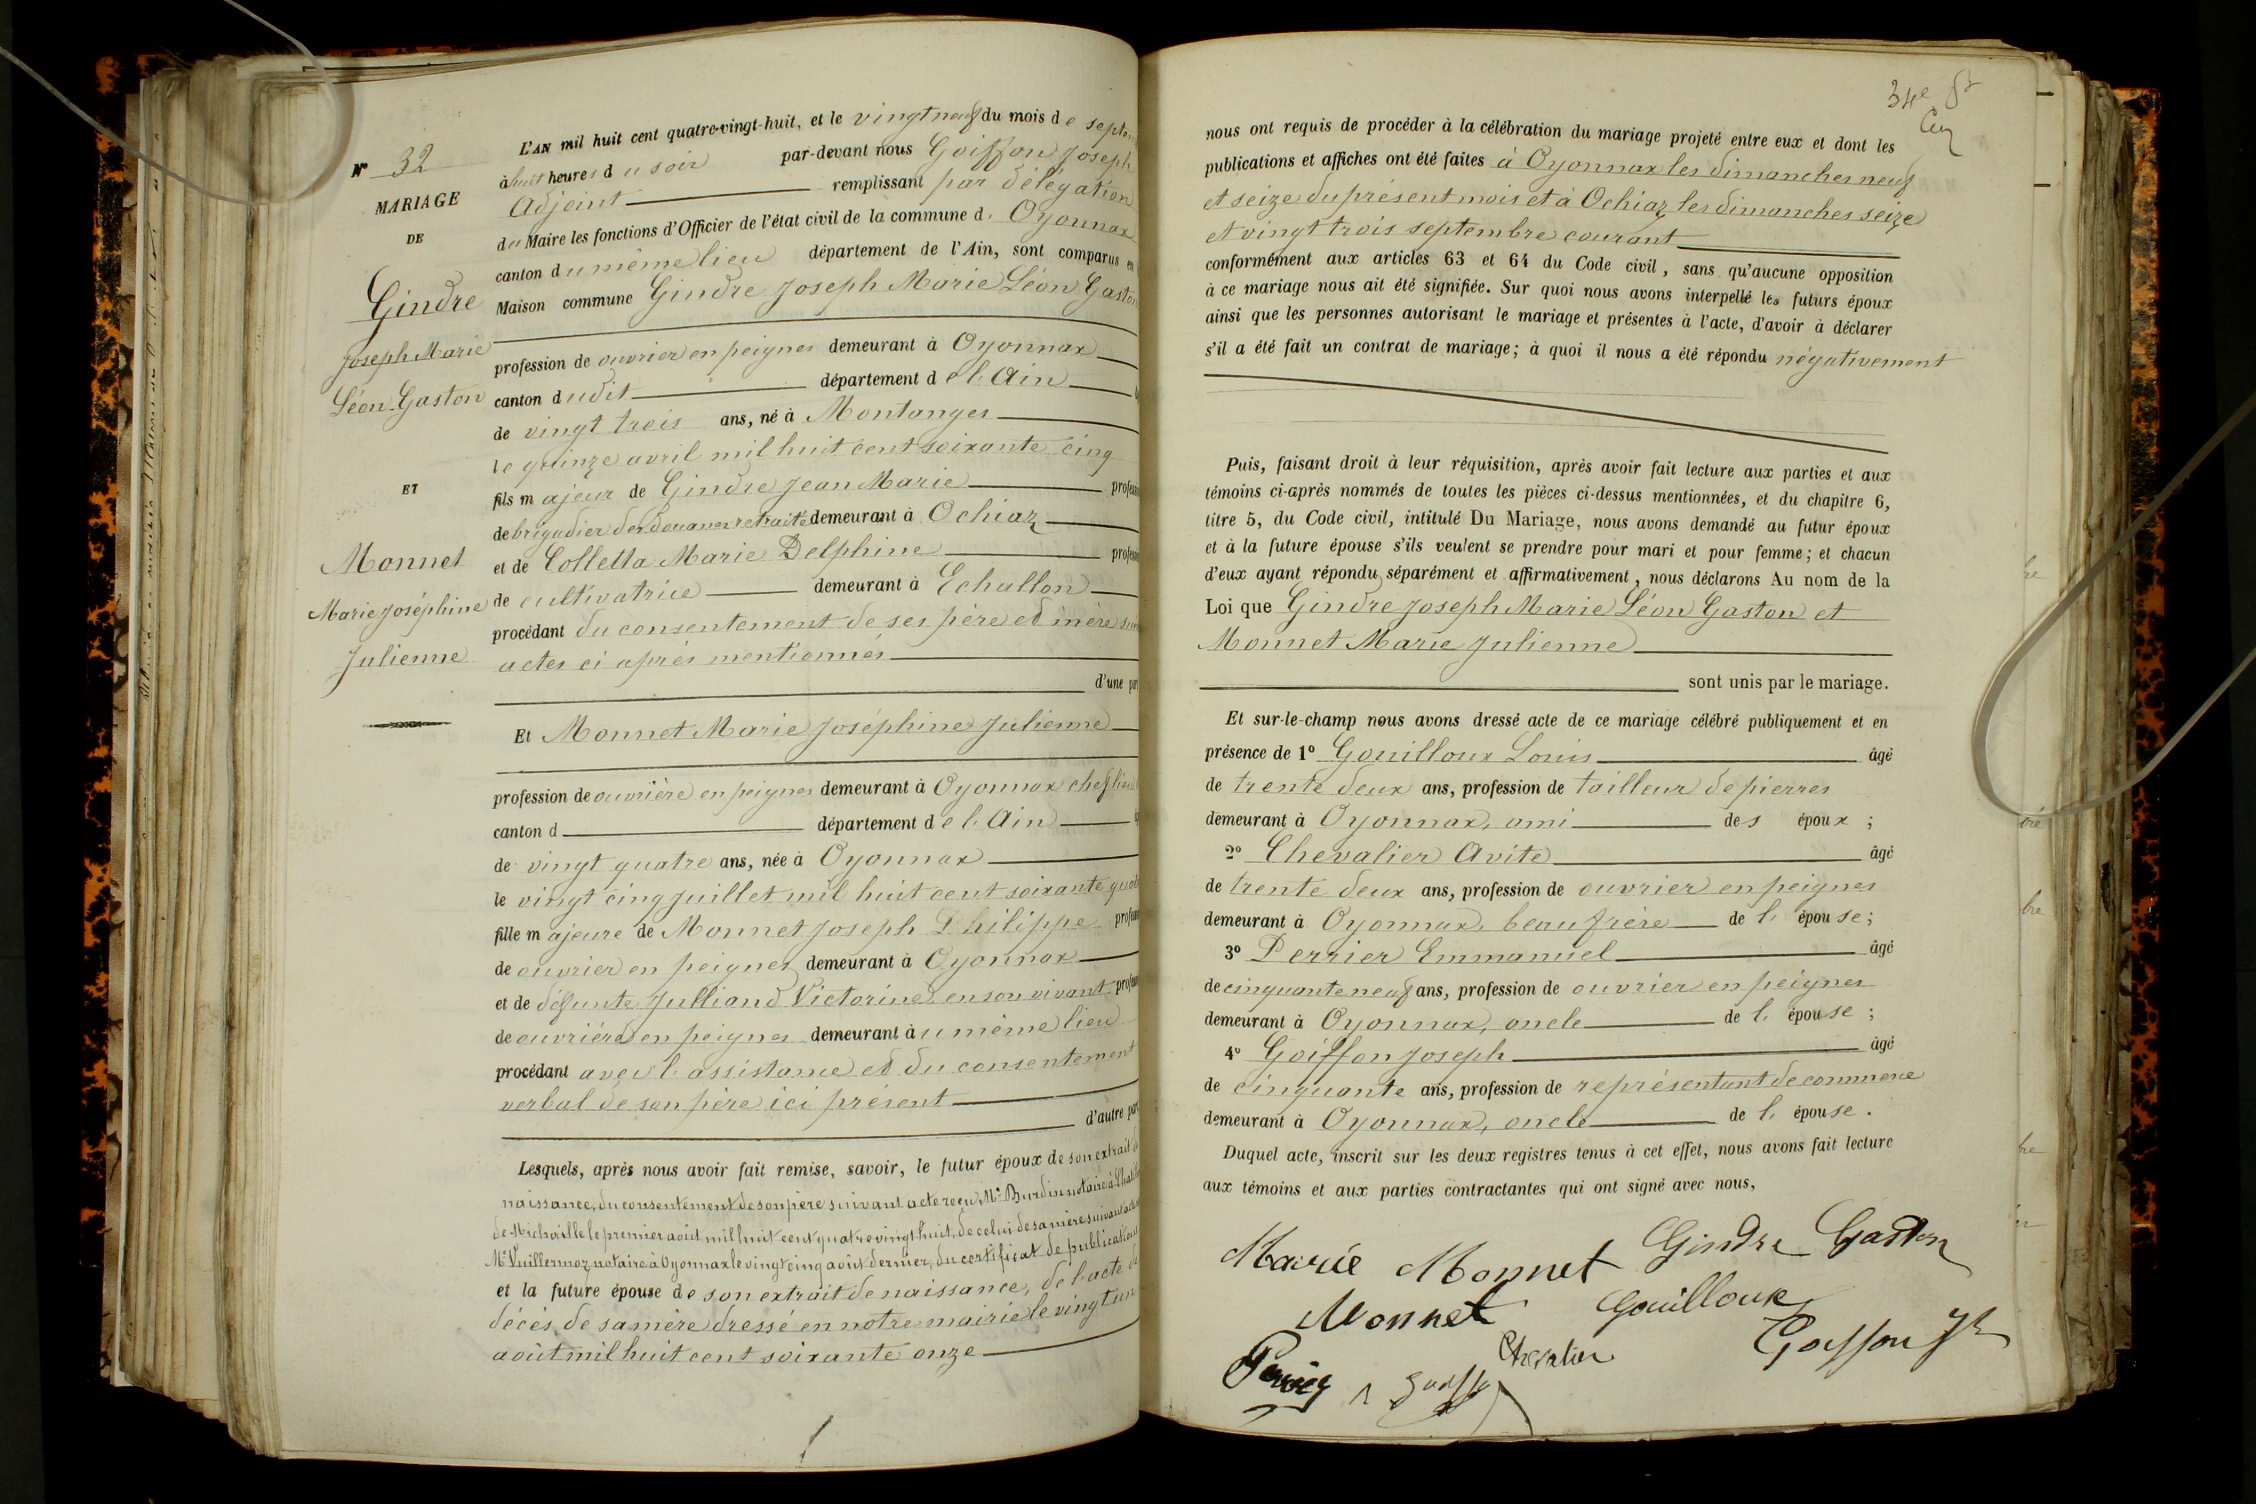 N° 32
MARIAGE
DE
Gindre
Joseph Marie
Léon Gaston
ET
Monnet
Marie Joséphine
Julienne
L'AN mil huit cent quatre-vingt-huit, et le vingt neuf du mois de septem
à huit heures du soir par-devant nous Goiffon Joseph
Adjoint remplissant par délégation
du Maire les fonctions d'Officier de l'état civil de la commune d. Oyonnax
canton du même lieu département de l'Ain, sont comparus en
Maison commune Gindre Joseph Marie Léon Gaston
profession de ouvrier en peignes demeurant à Oyonnax
canton dudit département de l'Ain
de vingt trois ans, né à Montanges
le quinze avril mil huit cent soixante cinq
fils majeur de Gindre Jean Marie profession
de brigadier des douanes retraité demeurant à Ochiaz
et de Colletta Marie Delphine profession
de cultivatrice demeurant à Echallon
procédant du consentement de ses père et mère suiv
actes ci après mentionnés
d'une part
Et Monnet Marie Joséphine Julienne
profession de ouvrière en peignes demeurant à Oyonnax chef lieu
canton d département de l'Ain
de vingt quatre ans, née à Oyonnax
le vingt cinq juillet mil huit cent soixante quat
fille majeure de Monnet Joseph Philippe profession
de ouvrier en peignes demeurant à Oyonnax
et de défunte Julliand Victorine en son vivant profession
de ouvrière en peignes demeurant au même lieu
procédant avec l'assistance et du consentement
verbal de son père ici présent
d'autre part
Lesquels, après nous avoir fait remise, savoir, le futur époux de son extrait de
naissance, du consentement de son père suivant acte reçu Me Burdin notaire à Chatillon
de Michaille le premier août mil huit cent quatre vingt huit, de celui de sa mère suivant acte
Me Vuillermoz notaire à Oyonnax le vingt cinq août dernier, du certificat de publications
et la future épouse de son extrait de naissance, de l'acte de
décès de sa mère dressé en notre mairie le vingt un
août mil huit cent soixante onze
34e ft
nous ont requis de procéder à la célébration du mariage projeté entre eux et dont les
publications et affiches ont été faites à Oyonnax les dimanches neuf
et seize du présent mois et à Ochiaz les dimanches seize
et vingt trois septembre courant
conformément aux articles 63 et 64 du Code civil, sans qu'aucune opposition
à ce mariage nous ait été signifiée. Sur quoi nous avons interpellé les futurs époux
ainsi que les personnes autorisant le mariage et présentes à l'acte, d'avoir à déclarer
s'il a été fait un contrat de mariage; à quoi il nous a été répondu négativement
Puis, faisant droit à leur réquisition, après avoir fait lecture aux parties et aux
témoins ci-après nommés de toutes les pièces ci-dessus mentionnées, et du chapitre 6,
titre 5, du Code civil, intitulé Du Mariage, nous avons demandé au futur époux
et à la future épouse s'ils veulent se prendre pour mari et pour femme; et chacun
d'eux ayant répondu séparément et affirmativement, nous déclarons Au nom de la
Loi que Gindre Joseph Marie Léon Gaston et
Monnet Marie Julienne
sont unis par le mariage.
Et sur-le-champ nous avons dressé acte de ce mariage célébré publiquement et en
présence de 1° Gouilloux Louis âgé
de trente deux ans, profession de tailleur de pierres
demeurant à Oyonnax, ami des époux ;
2° Chevalier Avite âgé
de trente deux ans, profession de ouvrier en peignes
demeurant à Oyonnax, beau frère de l. épouse;
3° Perrier Emmanuel âgé
de cinquante neuf ans, profession de ouvrier en peignes
demeurant à Oyonnax, oncle de l. épouse ;
4° Goiffon Joseph âgé
de cinquante ans, profession de représentant de commerce
demeurant à Oyonnax, oncle de l. épouse.
Duquel acte, inscrit sur les deux registres tenus à cet effet, nous avons fait lecture
aux témoins et aux parties contractantes qui ont signé avec nous,
Marie Monnet Gindre Gaston
Monnet Gouilloux
Chevalier Goiffon Jh
Perrier